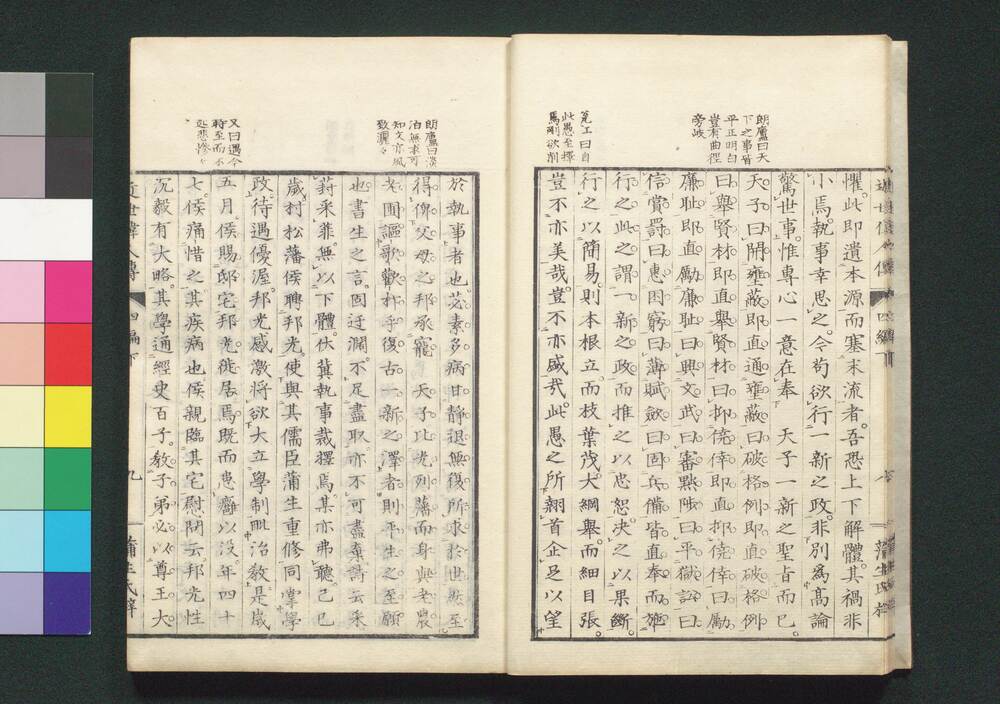 朗廬曰天
下之事皆
平正明白
豈有曲徑
旁岐
筧工曰自
此愚至擇
焉剛欲削
懼此即遺本源而塞末流者吾恐上下解體其禍非
小焉執事幸思之今苟欲行一新之政非別為高論
驚世事惟專心一意在奉 天子一新之聖旨而已
天子曰開壅蔽即直通壅蔽曰破格例即直破格例
曰舉賢材即直舉賢材曰抑僥倖即直抑僥倖曰勵
廉耻即直勵廉耻曰興文武曰審黜陟曰平獄訟曰
信賞罰曰惠困窮曰薄賦斂曰固兵備皆直奉而施
行之此之謂一新之政而推之以忠恕決之以果斷
行之以簡易則本根立而枝葉茂大綱舉而細目張
豈不亦美哉豈不亦盛哉此愚之所翹首企足以望
朗廬曰淡
泊無求可
知文亦風
致灑々
又曰遇今
時至而不
延悲慘々
於執事者也苾素多病甘靜退無復所求於世然至
得俾父母之邦承寵 天子比光列藩而身與老農
老圃謳歌歡抃乎復古一新之澤者則平生之至願
也書生之言固迂濶不足盡取亦不可盡棄詩云采
葑采菲無以下體伏冀執事裁擇焉其亦弗聽己巳
歲村松藩侯聘邦光使與其儒臣蒲生重修同掌學
政待遇優渥邦光感激將欲大立學制毗治教是歲
五月侯賜邸宅邦光徙居焉既而患癰以沒年四十
七侯痛惜之其疾病也侯親臨其宅慰問云邦光性
沉毅有大略其學通經史百子教子弟必以尊王大
近世偉人傳
四編下
九
蒲生氏梓